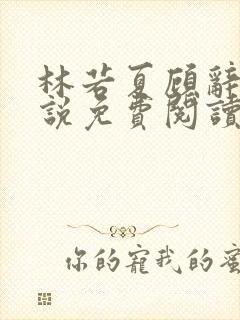 林若夏顾辞
說免費閱讀
你的寵我的蜜